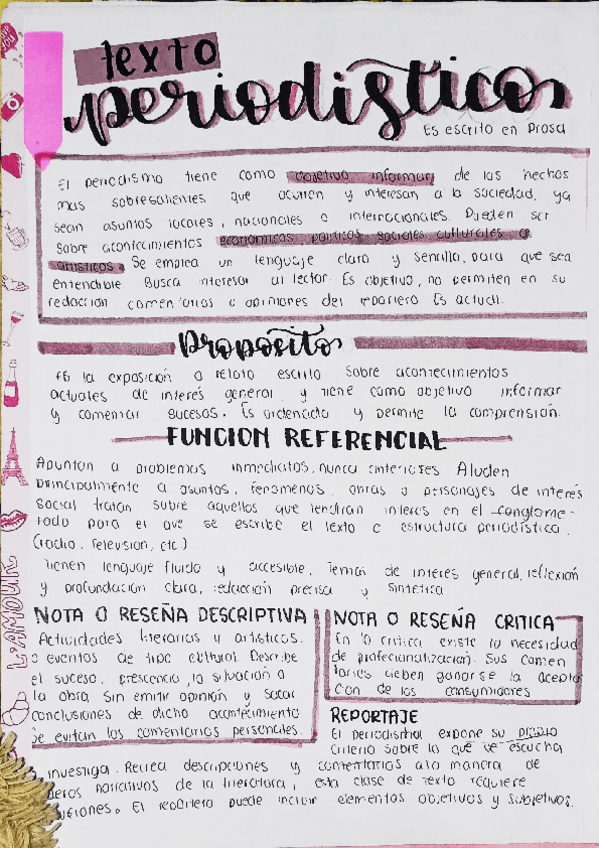 texto
periodístico
Es escrito en prosa
El periodismo tiene como objetivo informar de los hechos
mas sobresalientes que ocurren y interesan a la sociedad, ya
sean asuntos locales, nacionales o internacionales. Pueden ser
sobre acontecimientos económicos políticos sociales culturales o
artísticos. Se emplea un lenguaje claro y sencillo, para que sea
entendible. Busca interesar al lector. Es objetivo, no permiten en su
redacción comentarios o opiniones del reportero. Es actual.
Propósito
Es la exposición o relato escrito sobre acontecimientos
actuales de interés general y tiene como objetivo informar
y comentar sucesos. Es ordenado y permite la comprensión.
FUNCION REFERENCIAL
Apuntan a problemas inmediatos, nunca anteriores Aluden
principalmente a asuntos, fenomenos, obras o personajes de interés
social tratan sobre aquellos que tendrian interes en el conglome-
rado para el que se escribe el texto o estructura periodistica.
(radio, television, etc)
Tienen lenguaje fluido y accesible. Temas de interes general, reflexión
y profundacion clara, redacción precisa y sintetica
NOTA O RESEÑA DESCRIPTIVA
Actividades literarias y artisticos.
o eventos de tipo cultural. Describe
el suceso, prescencia, la situación o
la obra. Sin emitir opinión y sacar
conclusiones de dicho acontecimiento
se evitan los comentarios personales.
NOTA O RESEÑA CRITICA
En la critica existe la necesidad
de profecionalización. Sus comen
tarios deben ganarse la acepta
cion de los consumidores
REPORTAJE
El periodista expone su propio
criterio sobre lo que ve escucha
investiga. Recrea descripciones y comentarios a la manera de
narrativos de la literatura, esta clase de texto requiere
El reportero puede incluir elementos objetivos y subjetivos.
L'AMOUR